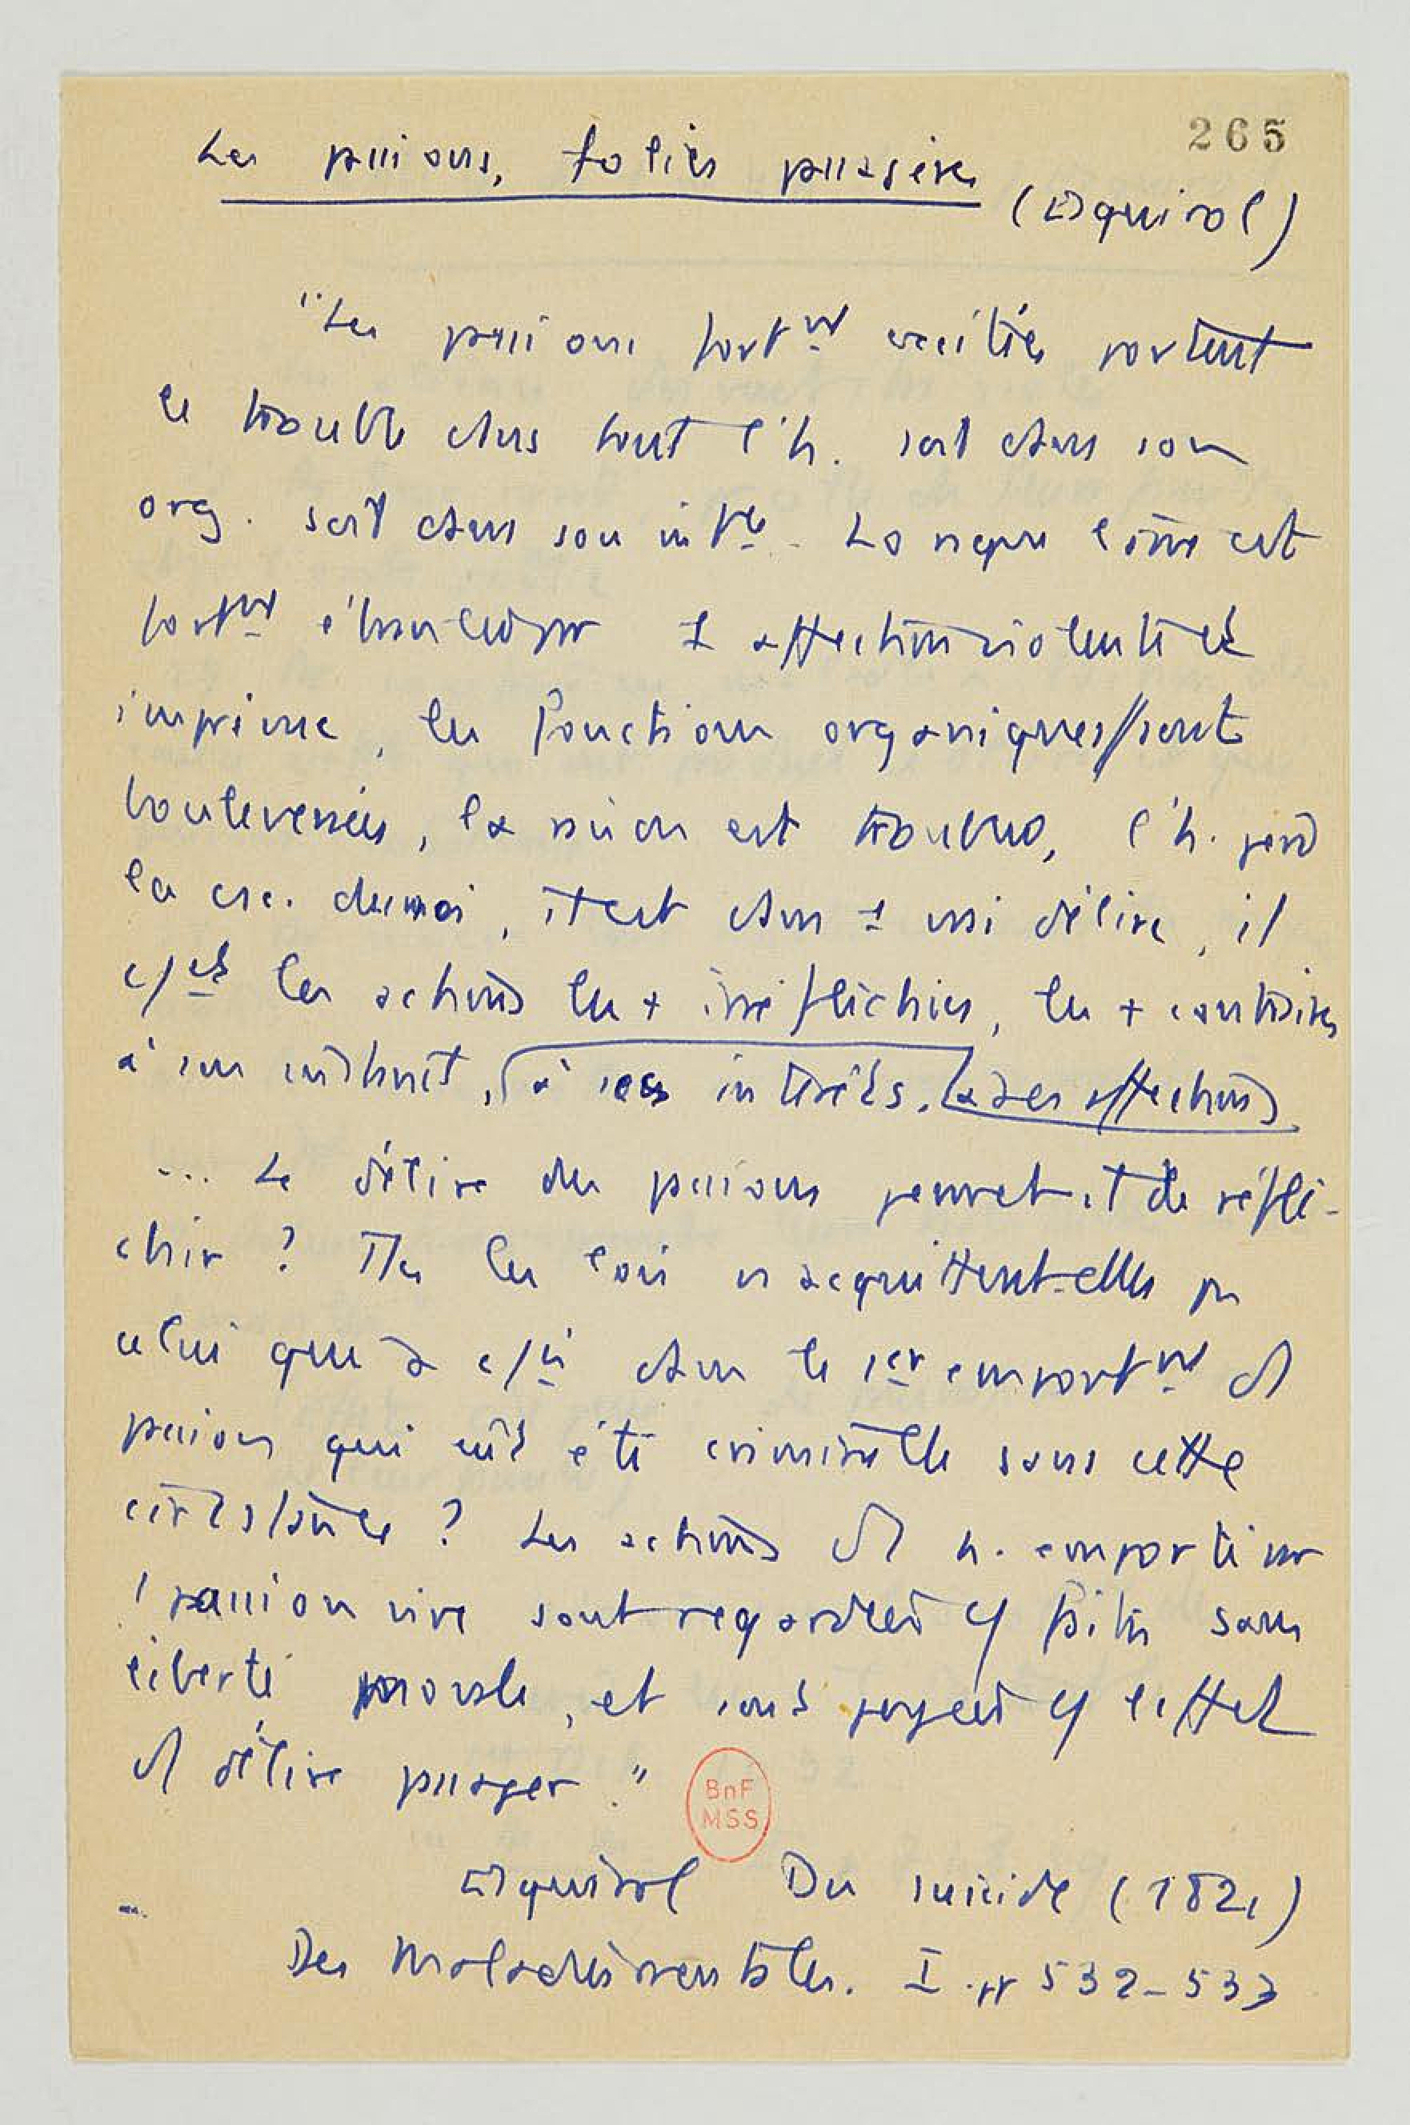 265
Les passions, folies passagères
(Esquirol)
"Les passions fortnt excitées portent
le trouble dans tout l'h. soit dans son
org. soit dans son intce. Lorsque l'âme est
fortnt ébranlée par 1 affection violente et
imprévue, les fonctions organiques sont
bouleversées, la raison est troublée, l'h. perd
la csc. du moi, il est dans 1 vrai délire, il
c/et les actions les + irréfléchies, les + contraires
à son instinct, à ses intérêts, à ses affections
... Le délire des passions permet-il de réflé-
chir ? Ttes les lois n'acquittent-elles pas
celui qui a c/is dans le 1er emportnt d'1
passion qui eût été criminelle sans cette
circonstance ? Les actions d'1 h. emporté par
1 passion vive sont regardées c/ faites sans
liberté morale, et sont jugées c/ l'effet
d'1 délire passager."
BnF
MSS
Esquirol Du suicide (1821)
Des Maladies mentales. I. pp 532-533